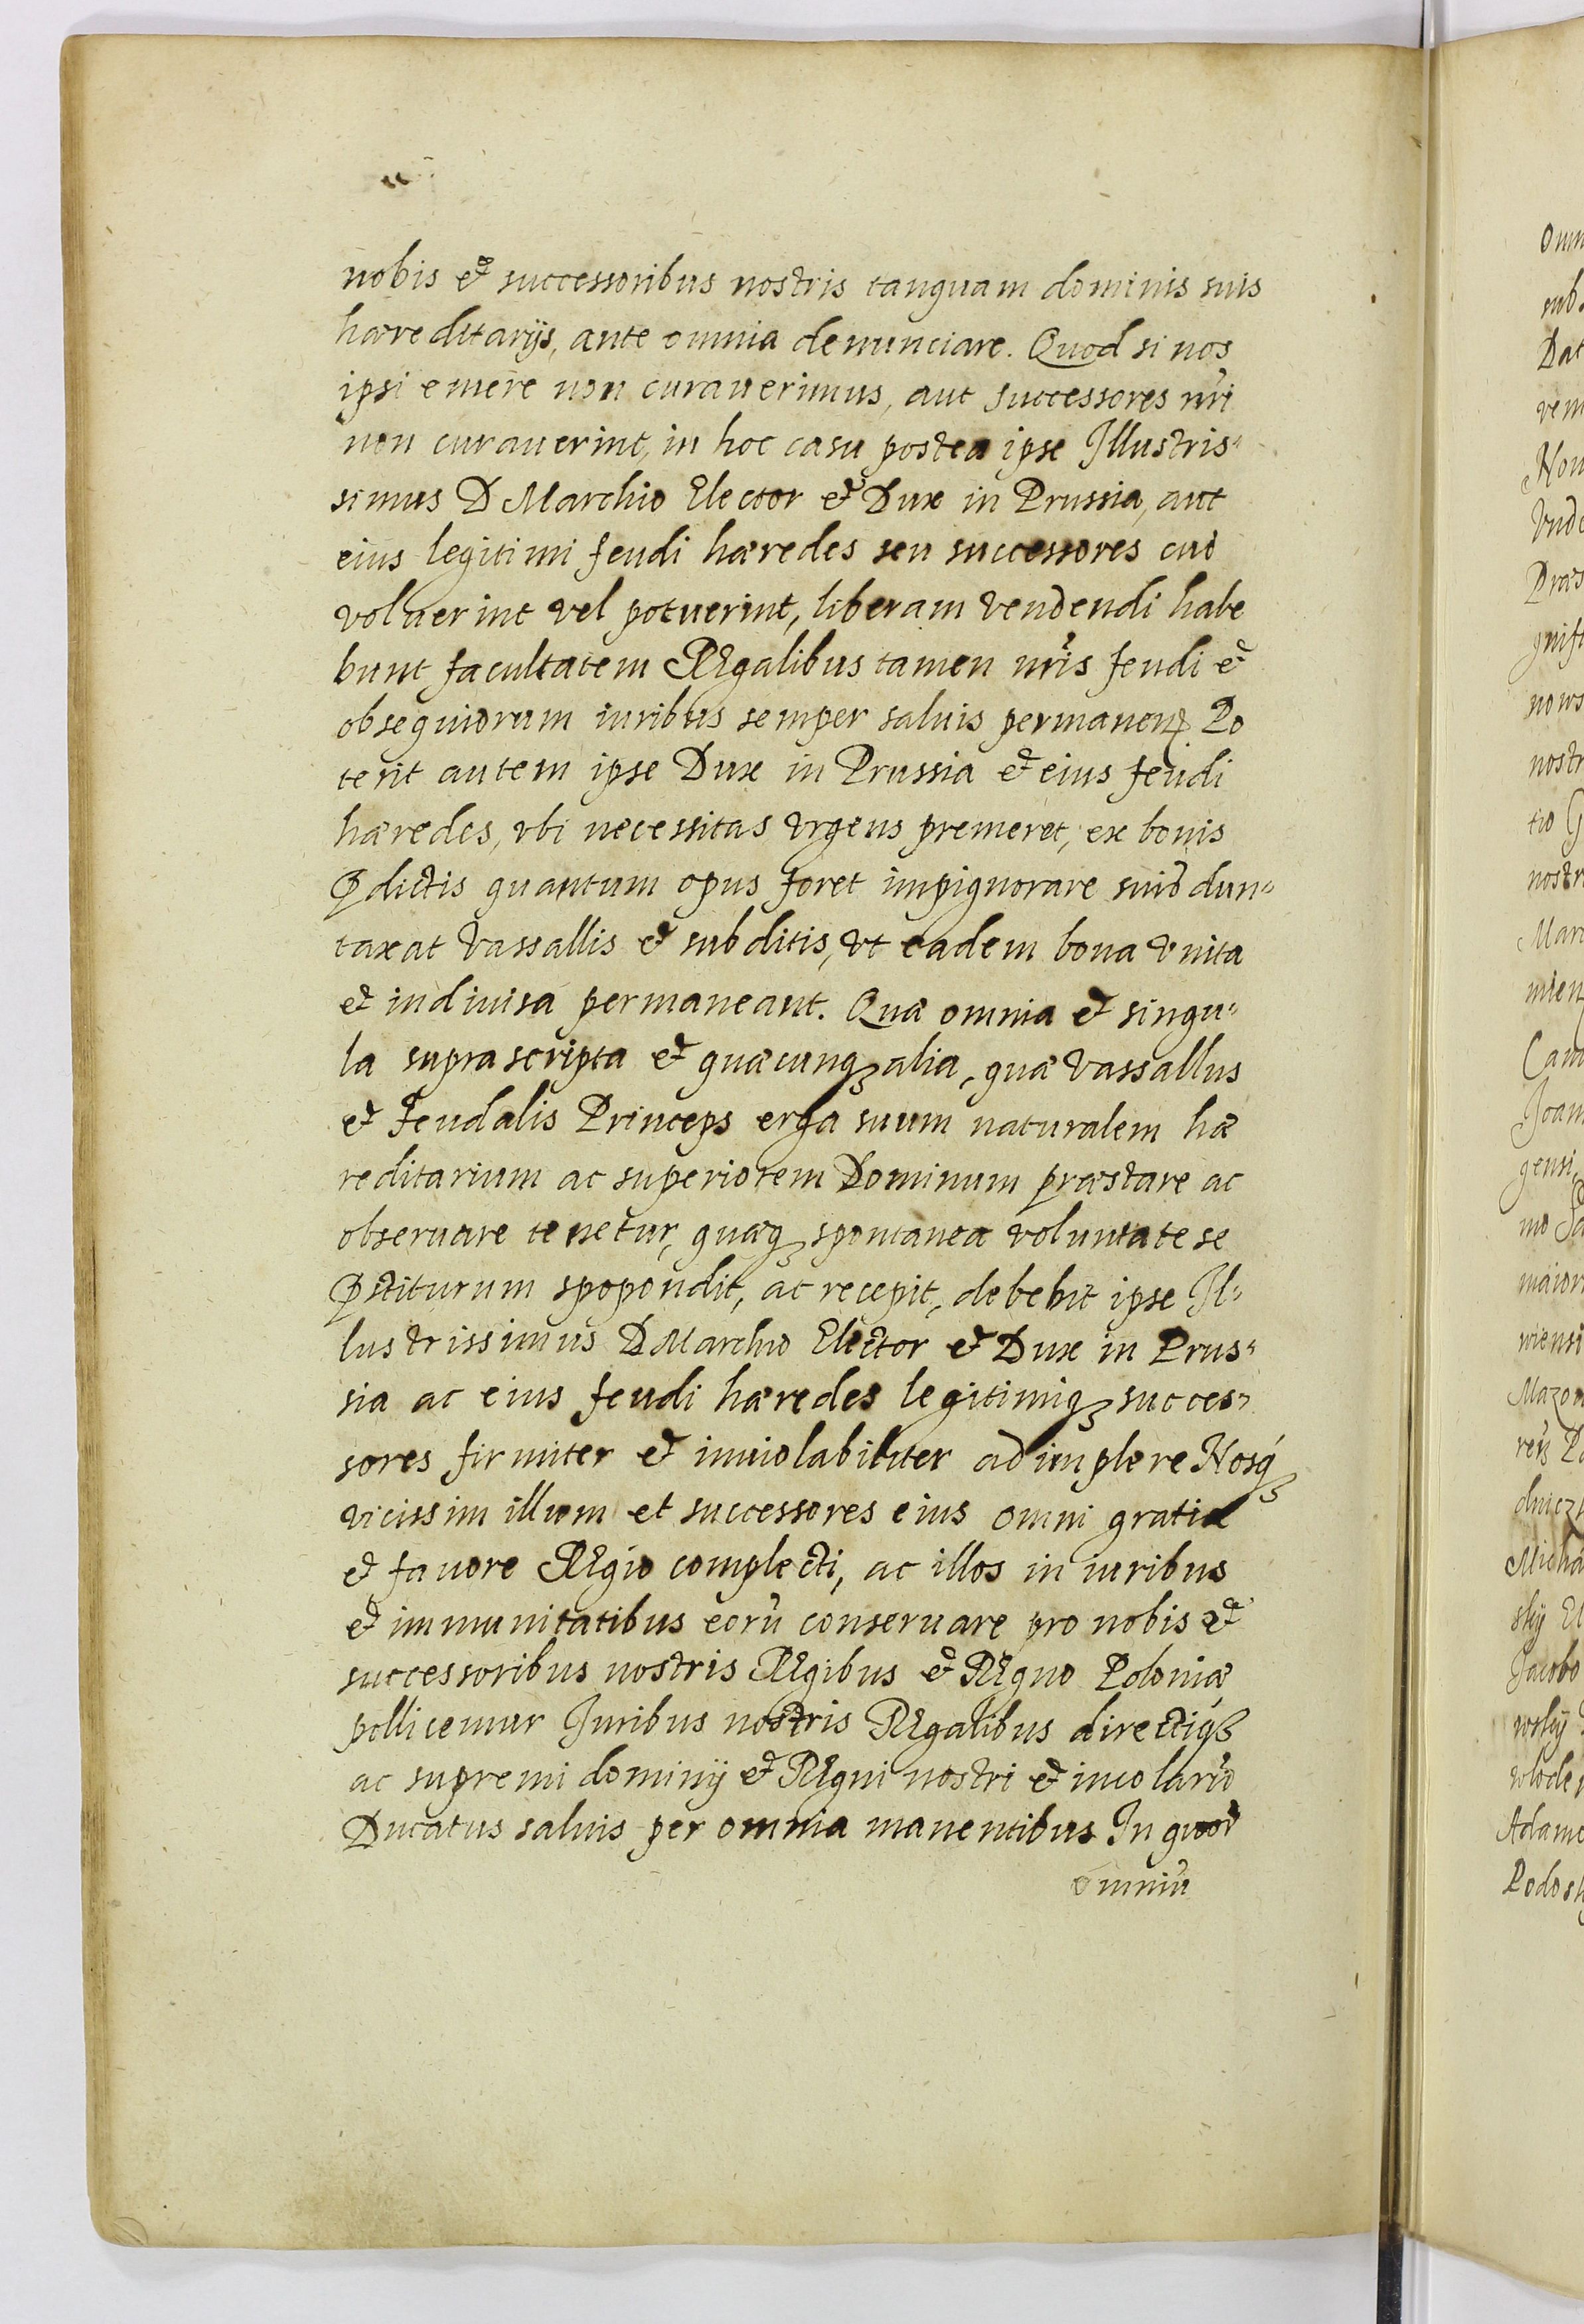 nobis et successoribus nostris tanquam dominis suis
hæreditarijs, ante omnia denunciare. Quod si nos
ipsi emere non curauerimus, aut successores nri
non curauerint, in hoc casu postea ipse Illustris-
simus D Marchio Elector et Dux in Prussia, aut
eius legitimi feudi hæredes seu successores cui
voluerint vel potuerint, liberam vendendi habe
bunt facultatem Regalibus tamen nris feudi et
obsequiorum iuribus semper saluis permanen. Po
terit autem ipse Dux in Prussia et eius feudi
hæredes, vbi necessitas vrgens premeret, ex bonis
pdictis quantum opus foret impignorare suis dun-
taxat vassallis et subditis, vt eadem bona vnita
et indiuisa permaneant. Quæ omnia et singu-
la suprascripta et quæcunqꝫ alia, quæ vassallus
et feudalis Princeps erga suum naturalem hæ
reditarium ac superiorem Dominum præstare ac
obseruare tenetur, quæqꝫ spontanea voluntate se
pstiturum spopondit, ac recepit, debebit ipse Il-
lustrissimus D Marchio Elector et Dux in Prus-
sia ac eius feudi hæredes legitimiqꝫ succes-
sores firmiter et inuiolabiliter adimplere Nosqꝫ
vicissim illum et successores eius omni gratia
et fauore Regio complecti, ac illos in iuribus
et immunitatibus eorū conseruare pro nobis et
successoribus nostris Regibus et Regno Poloniæ
pollicemur Iuribus nostris Regalibus directiqꝫ
ac supremi dominij et Regni nostri et incolarū
Ducatus saluis per omnia manentibus In quor
omniū